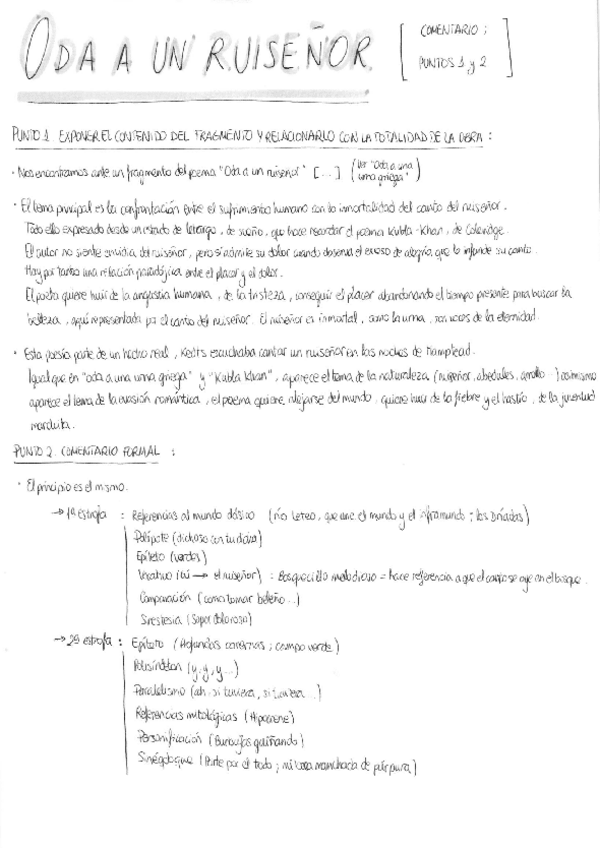 ODA A UN RUISEÑOR
[COMENTARIO:
PUNTOS 1 y 2]
PUNTO 1. EXPONER EL CONTENIDO DEL FRAGMENTO Y RELACIONARLO CON LA TOTALIDAD DE LA OBRA:
· Nos encontramos ante un fragmento del poema "Oda a un ruiseñor" [...] (Ver "Oda a una urna griega")
· El tema principal es la confrontación entre el sufrimiento humano con la inmortalidad del canto del ruiseñor.
Todo ello expresado desde un estado de letargo, de sueño, que hace recordar el poema Kubla-Khan, de Coleridge.
El autor no siente envidia del ruiseñor, pero sí admite su dolor cuando observa el exceso de alegría, que le infunde su canto.
Hay por tanto una relación paradójica entre el placer y el dolor.
El poeta quiere huir de la angustia humana, de la tristeza, conseguir el placer abandonando el tiempo presente para buscar la
belleza, aquí representada por el canto del ruiseñor. El ruiseñor es inmortal, como la urna, son voces de la eternidad.
· Esta poesía parte de un hecho real, Keats escuchaba cantar un ruiseñor en las noches de
Igual que en "oda a una urna griega" y "Kubla Khan", aparece el tema de la naturaleza (ruiseñor, abedules, arroyo...) asimismo
aparece el tema de la evasión romántica, el poema quiere alejarse del mundo, quiere huir de la fiebre y el hastío, de la juventud
marchita.
PUNTO 2. COMENTARIO FORMAL:
· El principio es el mismo.
→ 1ª estrofa: Referencias al mundo clásico (río Leteo, que une el mundo y el inframundo; las Dríadas)
Políptote (dichoso con tu dicha)
Epíteto (verdes)
Vocativo (tú → el ruiseñor): Bosquecillo melodioso = hace referencia a que el canto se oye en el bosque.
Comparación (como tomar beleño...)
Sinestesia (Sopor doloroso)
→ 2ª estrofa: Epíteto (Profundas cavernas; campo verde)
Polisíndeton (y, y, y...)
Paralelismo (ah, si tuviera, si tuviera...)
Referencias mitológicas (Hipocrene)
Personificación (Burbujas guiñando)
Sinécdoque (Parte por el todo; mi boca manchada de púrpura)